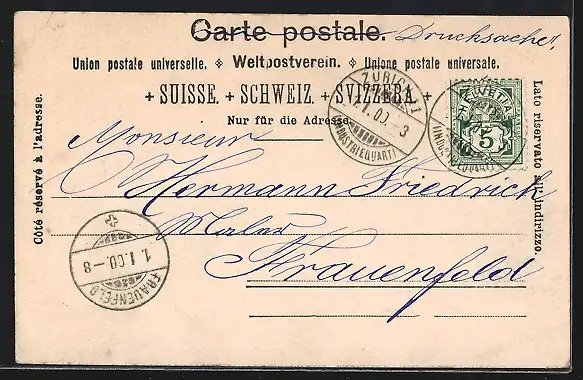 Carte postale. Drucksache!
Union postale universelle. Weltpostverein. Unione postale universale.
+ SUISSE. + SCHWEIZ. + SVIZZERA. +
Nur für die Adresse.
Côté réservé à l'adresse.
Lato riservato all'indirizzo.
Monsieur
Hermann Friedrich
Maler
Frauenfeld
ZÜRICH
(INDUSTRIEQUART)
5
1. I. 00. – 8
FRAUENFELD